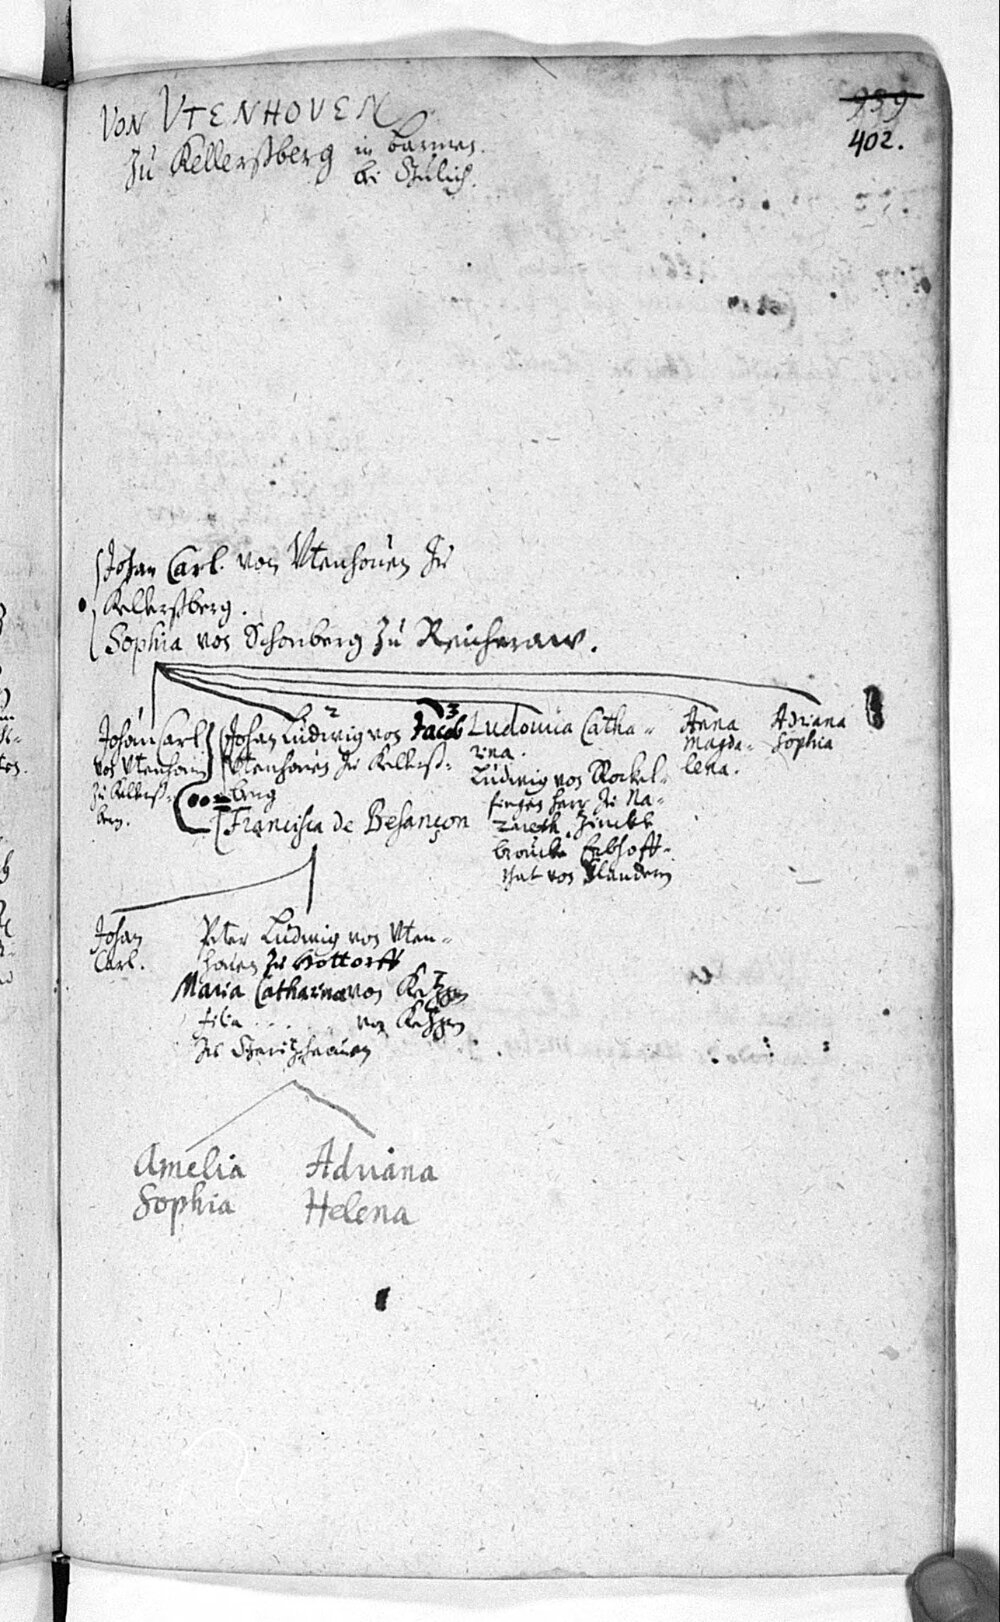 VON VTENHOVEN
939
402.
Zu Kellerßberg in Barmen
bei Gülich.
Johan Carl von Vtenhouen zu
Kellerßberg.
Sophia von Schonberg zu Reicheraw.
Johan Carl
von Vtenhouen
zu Kellerß-
berg.
2
Johan Ludwig von
Vtenhouen zu Kellerß-
berg
Francisca de Besançon
3
Jacob
Ludouica Catha-
rina.
Ludwig von
Herr zu Na-
zareth
von Flandern
Anna
Magda-
lena.
Adriana
Sophia
Johan
Carl.
Peter Ludwig von Vten-
houen zu Hottorff
Maria Catharina von Ketzgen
filia . . . von Ketzgen
zu
Amelia
Sophia
Adriana
Helena